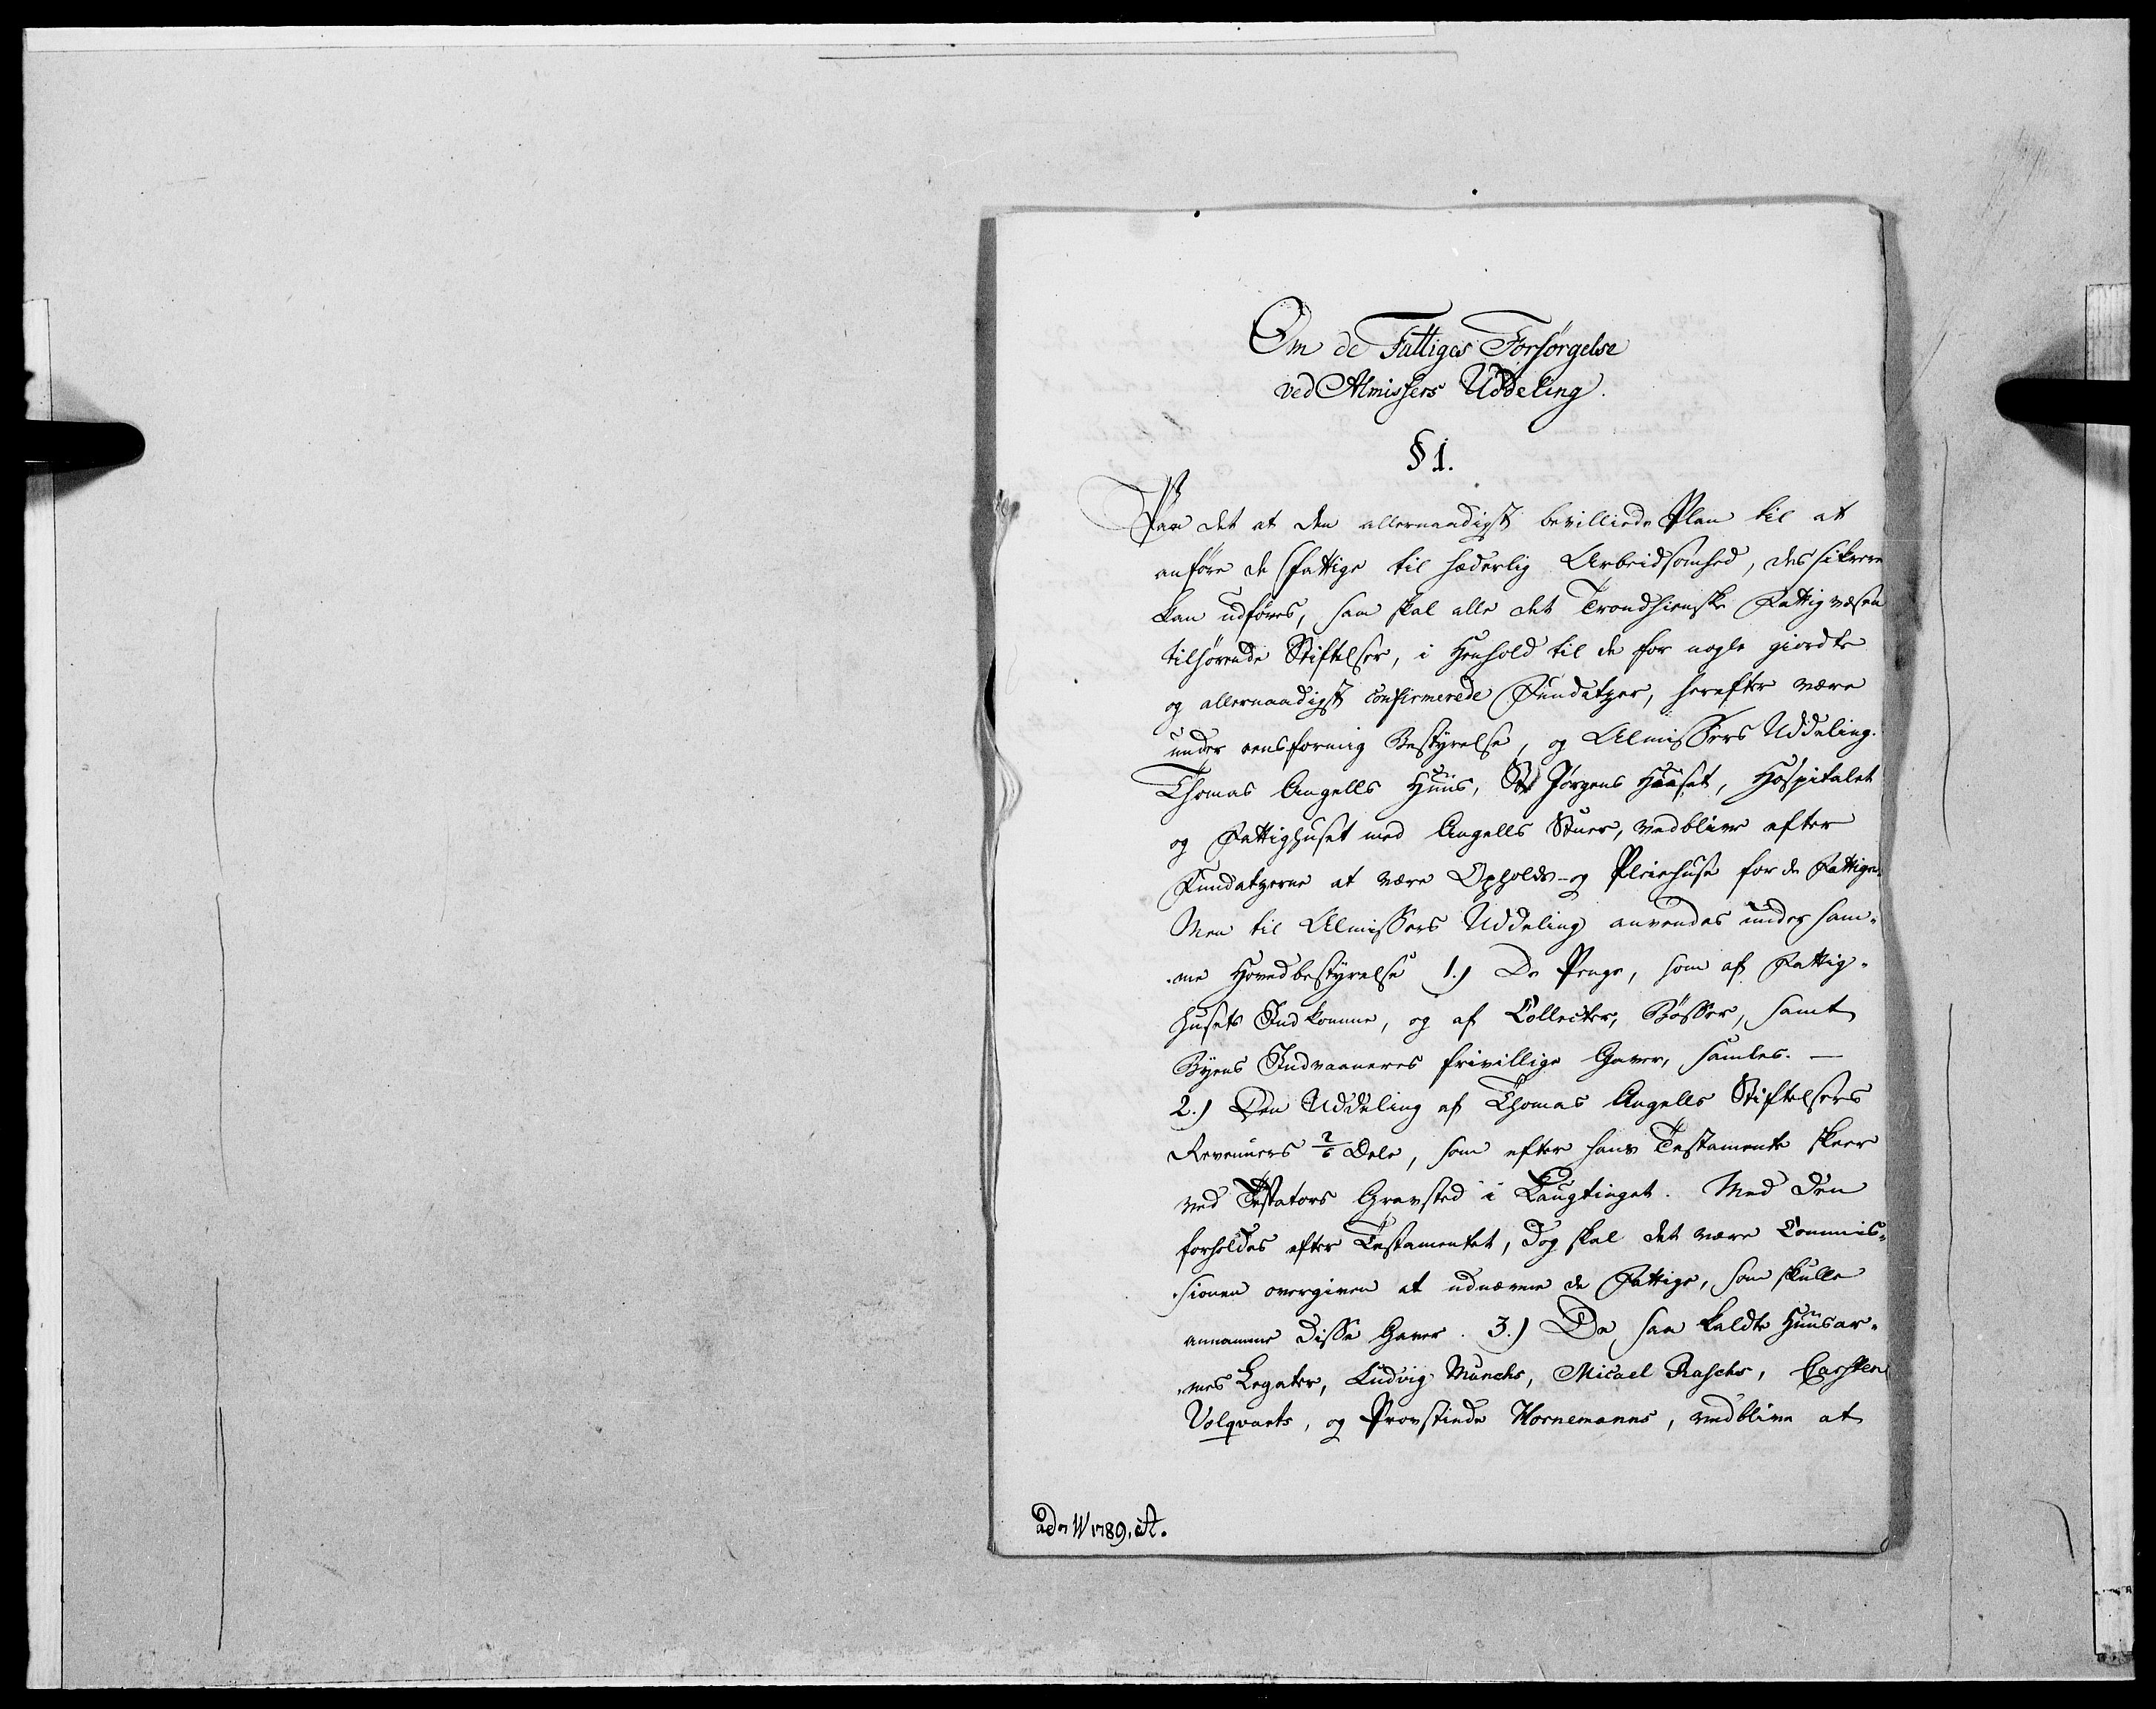 Om de Fattiges Forsørgelse
ved Almissers Uddeling.
§ 1.
Paa det at den allernaadigst bevilliede Plan til at
anføre de Fattige til hæderlig Arbeidsomhed, des sikrere
kan udføres, saa skal alle det Trondhiemske Fattigvæsen
tilhørende Stiftelser, i Henhold til de for nogle giordte
og allernaadigst confirmerede Fundatzer, herefter være
under eensformig Bestyrelse, og Almissers Uddeling.
Thomas Angells Huus, St Jørgens Huuset, Hospitalet
og Fattighuset med Angells Stuer, vedblive efter
Fundatzerne at være Opholds- og Pleiehuse for de Fattige.
Men til Almissers Uddeling anvendes under sam-
-me Hovedbestyrelse 1.) De Penge, som af Fattig-
husets Indkomme, og af Collecter, Bøsser, samt
Byens Indvaaneres frivillige Gaver, samles. —
2.) Den Uddeling af Thomas Angells Stiftelsers
Revenuers 2/6 Dele, som efter hans Testamente skeer
ved Testators Gravsted i Laugtinget. Med den
forholdes efter Testamentet, dog skal det være Commis-
-sionen overgiven at udnævne de Fattige, som skulle
annamme disse Gaver. 3.) De saa kaldte Huusar-
-mes Legater, Ludvig Munchs, Micael Raschs, Carsten
Volqvarts, og Provstinde Hornemanns, vedblive at
ad n W 1789, A.